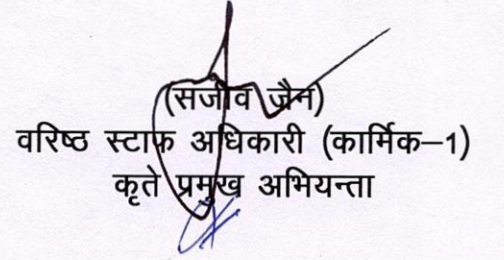 (संजीव जैन)
वरिष्ठ स्टाफ अधिकारी (कार्मिक–1)
कृते प्रमुख अभियन्ता